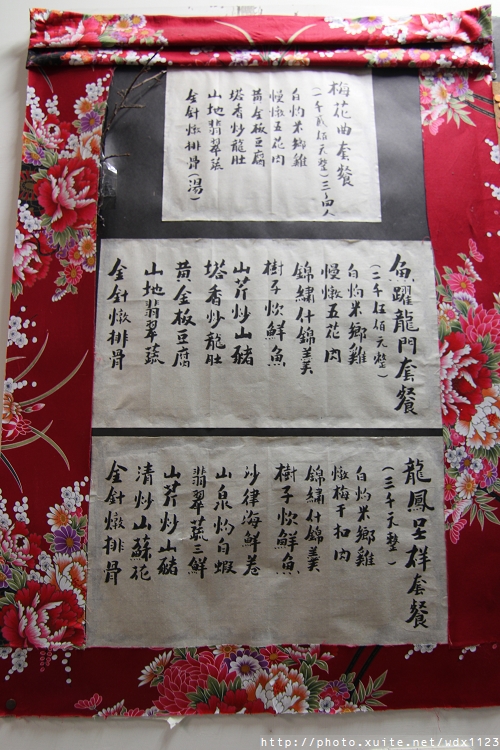 梅花曲套餐
(二千貳佰元整)三~四人
白灼米鄉雞
慢燉五花肉
黃金板豆腐
塔香炒龍肚
山地翡翠蔬
金針燉排骨(湯)
魚躍龍門套餐
(二千伍佰元整)
白灼米鄉雞
慢燉五花肉
錦繡什錦羹
樹子炊鮮魚
山芹炒山豬
塔香炒龍肚
黃金板豆腐
山地翡翠蔬
金針燉排骨
龍鳳呈群套餐
(三千元整)
白灼米鄉雞
燉梅干扣肉
錦繡什錦羹
樹子炊鮮魚
沙律海鮮卷
山泉灼白蝦
翡翠蔬三鮮
山芹炒山豬
清炒山蘇花
金針燉排骨
http://photo.xuite.net/wdx1123